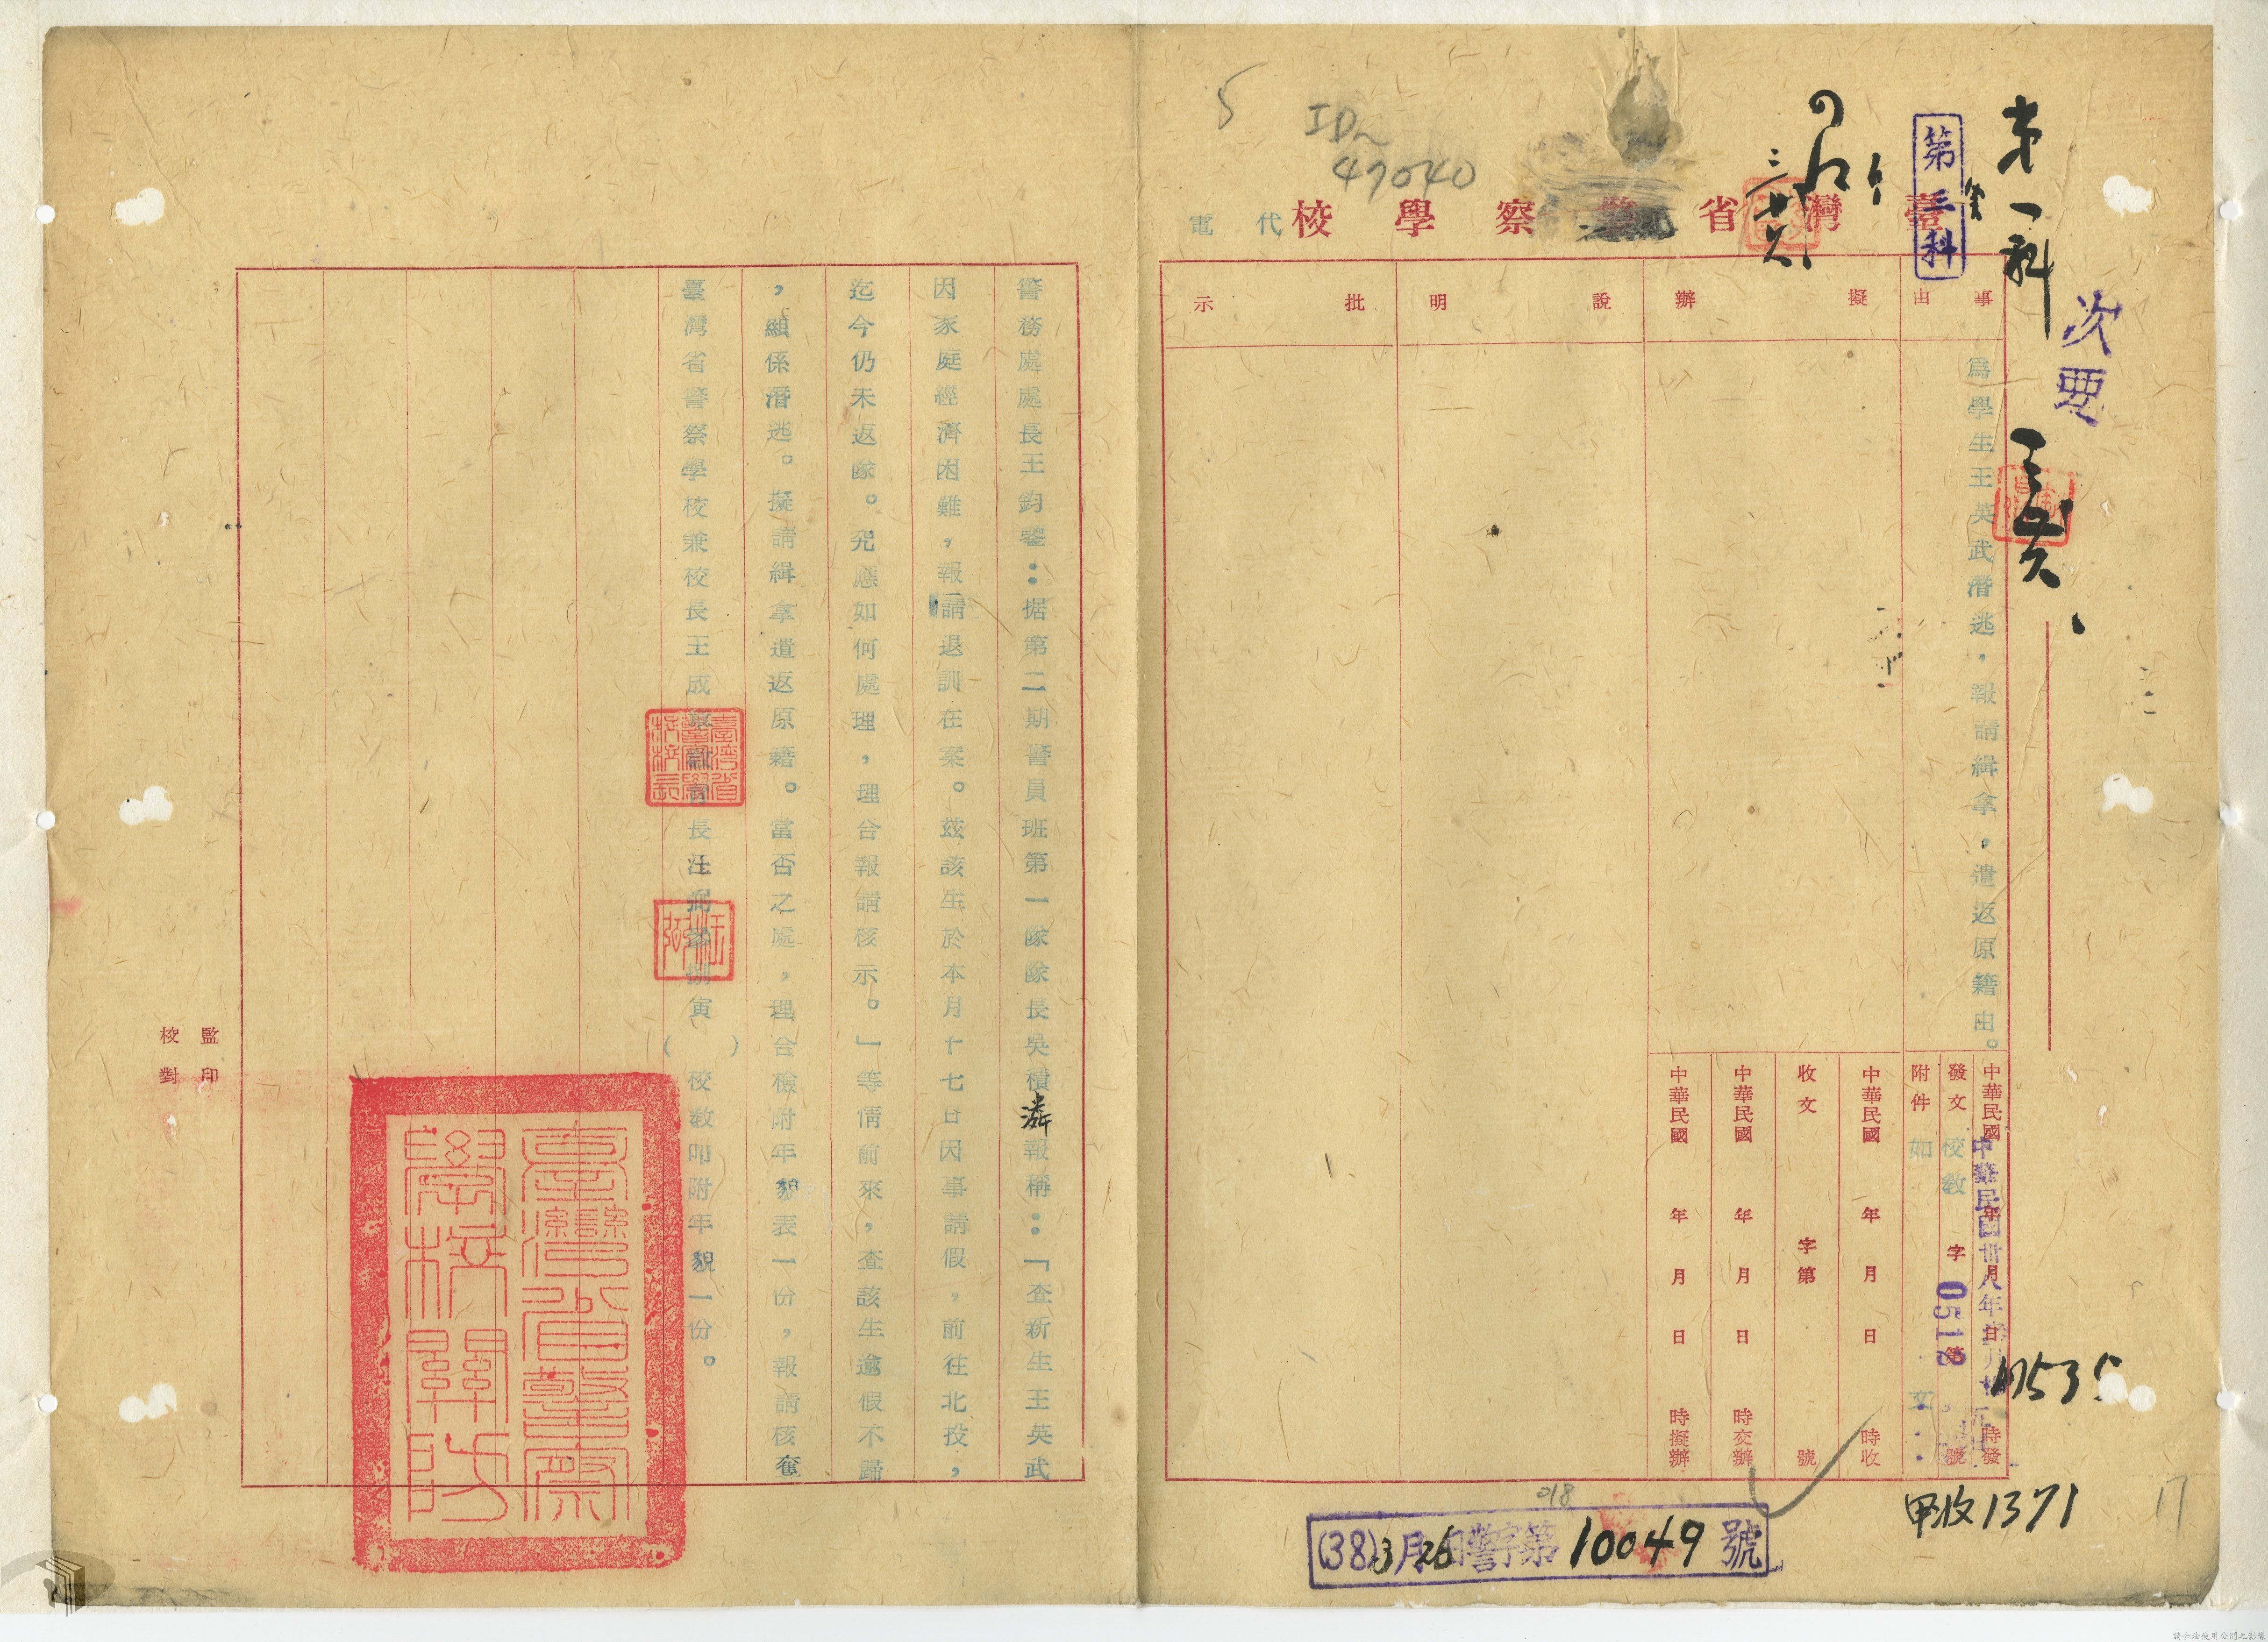 第一科
次要
第三科
5
ID~
47040
臺灣省警察學校 代電
事由
為學生王英武潛逃,報請緝拿,遣返原籍由。
擬辦
說明
批示
中華民國 年 月 日 時發
發文 校教 字第 0512 號
附件 如文
中華民國 年 月 日 時收
收文 字第 號
中華民國 年 月 日 時交辦
中華民國 年 月 日 時擬辦
17535
甲收1371
17
018
(38)3月26日警字第10049號
警務處處長王鈞鑒:据第二期警員班第一隊隊長吳積潾報稱:「查新生王英武
因家庭經濟困難,報請退訓在案。茲該生於本月十七日因事請假,前往北投,
迄今仍未返隊。究應如何處理,理合報請核示。」等情前來,查該生逾假不歸
,顯係潛逃。擬請緝拿遣返原籍。當否之處,理合檢附年貌表一份,報請核奪
臺灣省警察學校兼校長王成章副校長汪 參捌寅( )校教叩附年貌一份。
臺灣省警察學校校長
臺灣省警察學校關防
監印
校對
請合法使用公開之影像